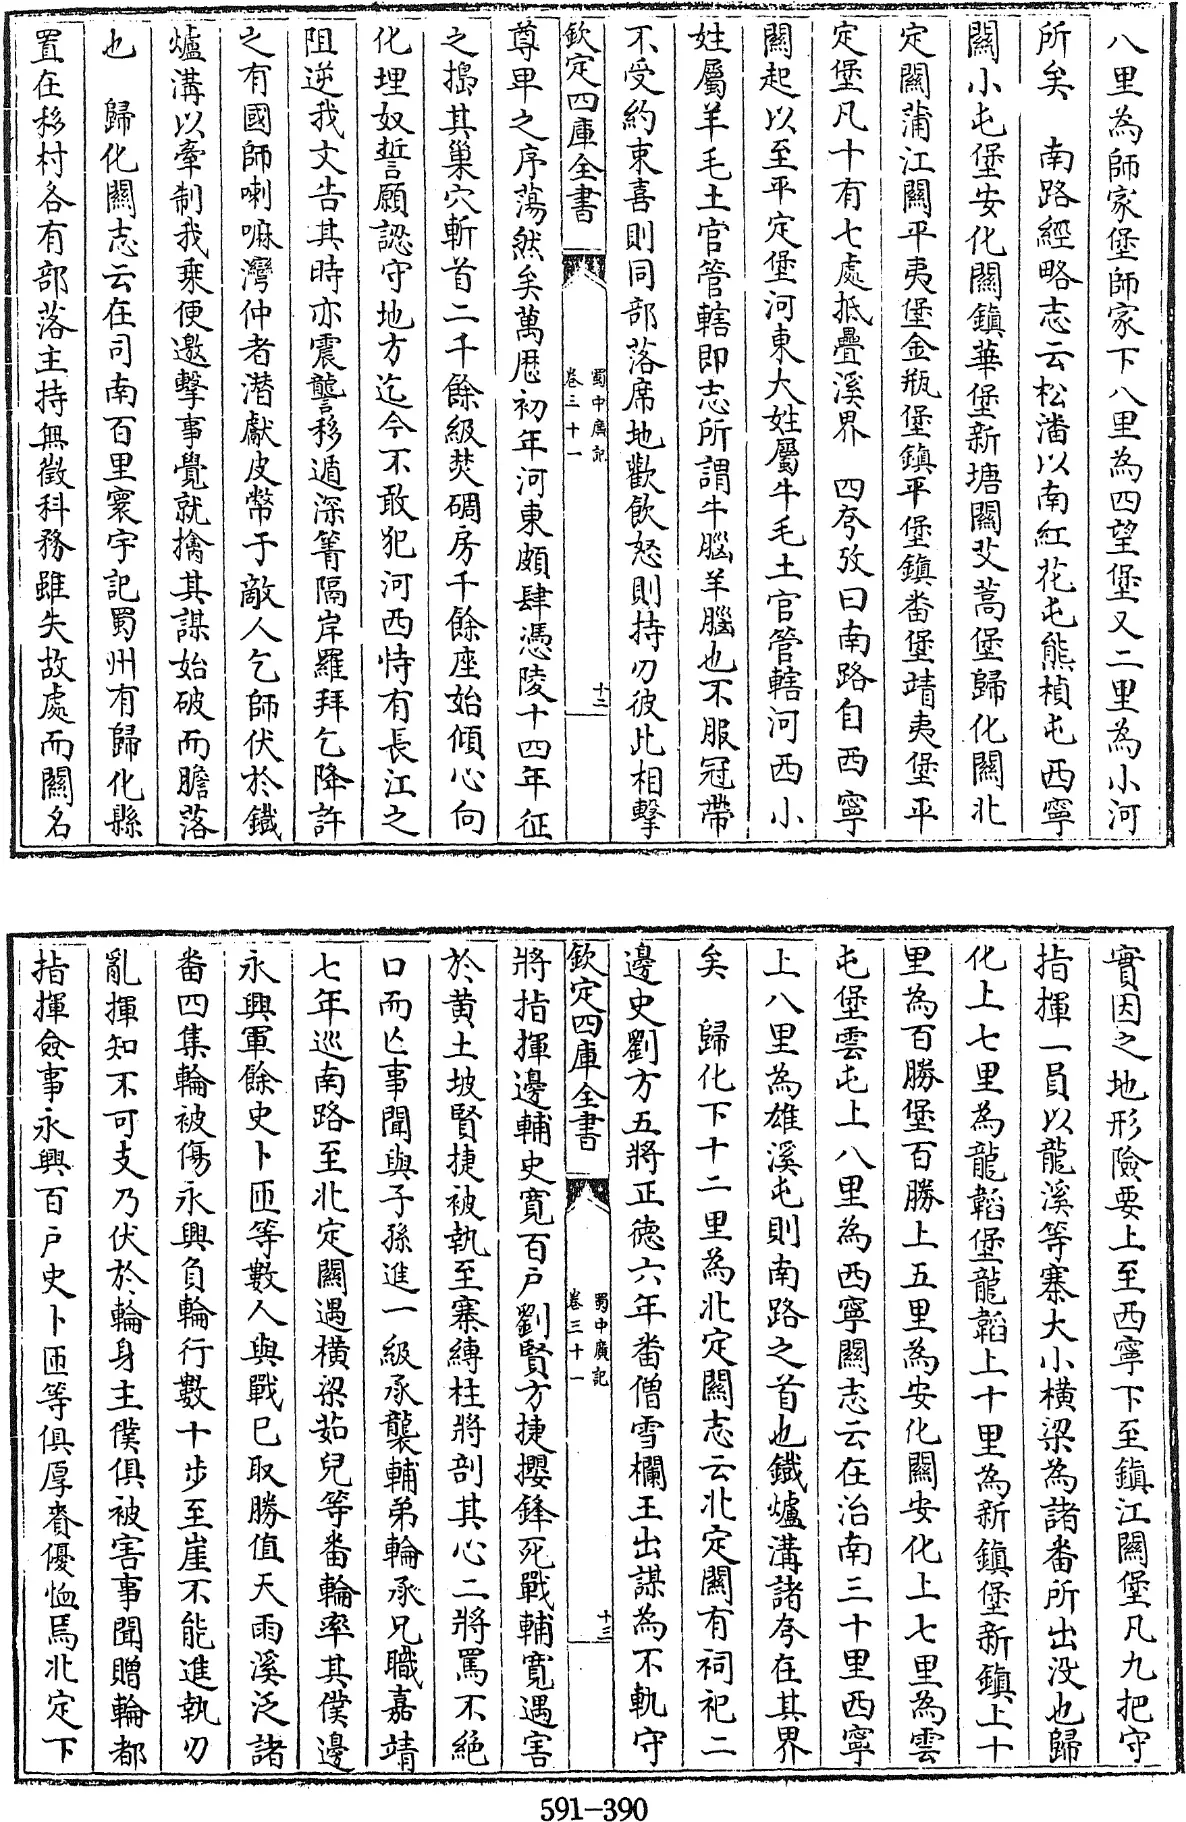 八里為師家堡師家下八里為四望堡又二里為小河
所矣　南路經略志云松潘以南紅花屯熊楨屯西寧
關小屯堡安化關鎮華堡新塘關艾蒿堡歸化關北
定關蒲江關平夷堡金瓶堡鎮平堡鎮番堡靖夷堡平
定堡凡十有七處抵疊溪界　四夸攷曰南路自西寧
關起以至平定堡河東大姓屬牛毛土官管轄河西小
姓屬羊毛土官管轄即志所謂牛腦羊腦也不服冠帶
不受約束喜則同部落席地歡飲怒則持刀彼此相擊
欽定四庫全書　蜀中廣記　卷三十一　十二
尊卑之序蕩然矣萬厯初年河東頗肆憑陵十四年征
之搗其巢穴斬首二千餘級焚碉房千餘座始傾心向
化埋奴誓願認守地方迄今不敢犯河西恃有長江之
阻逆我文告其時亦震讋移遁深箐隔岸羅拜乞降許
之有國師喇嘛灣仲者潛獻皮幣于敵人乞師伏於鐵
爐溝以牽制我乘便邀擊事覺就擒其謀始破而膽落
也　歸化關志云在司南百里寰宇記蜀州有歸化縣
置在移村各有部落主持無徵科務雖失故處而關名
實因之地形險要上至西寧下至鎮江關堡凡九把守
指揮一員以龍溪等寨大小橫梁為諸番所出没也歸
化上七里為龍韜堡龍韜上十里為新鎮堡新鎮上十
里為百勝堡百勝上五里為安化關安化上七里為雲
屯堡雲屯上八里為西寧關志云在治南三十里西寧
上八里為雄溪屯則南路之首也鐵爐溝諸夸在其界
矣　歸化下十二里為北定關志云北定關有祠祀二
邊史劉方五將正德六年番僧雪欄王出謀為不軌守
欽定四庫全書　蜀中廣記　卷三十一　十三
將指揮邊輔史寛百戸劉賢方捷攖鋒死戰輔寛遇害
於黄土坡賢捷被執至寨縛柱將剖其心二將罵不絶
口而亡事聞與子孫進一級承襲輔弟輪承兄職嘉靖
七年巡南路至北定關遇橫梁茹兒等番輪率其僕邊
永興軍餘史卜匝等數人與戰已取勝值天雨溪泛諸
番四集輪被傷永興負輪行數十步至崖不能進執刀
亂揮知不可支乃伏於輪身主僕俱被害事聞贈輪都
指揮僉事永興百戸史卜匝等俱厚賚優恤焉北定下
591-390